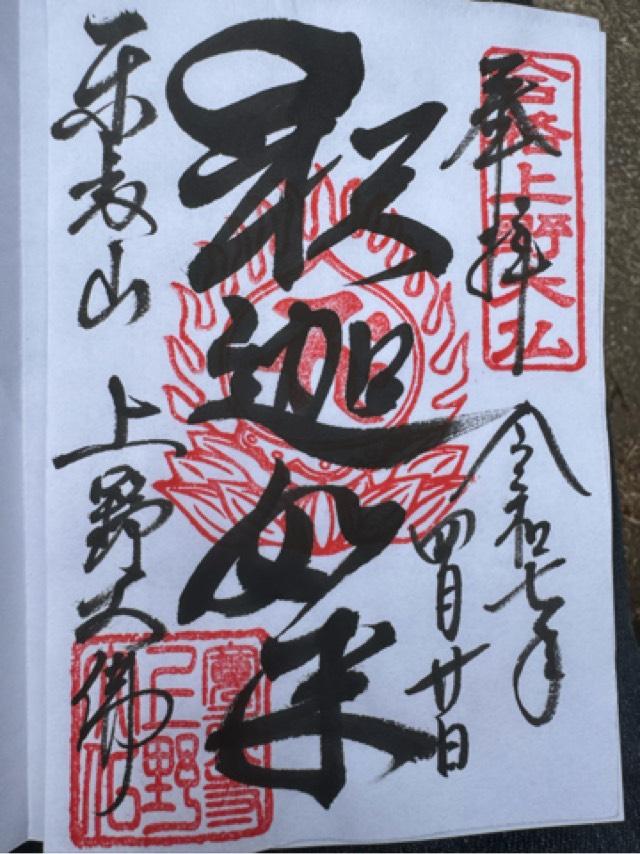 合格上野大仏
奉拝
令和七年
四月廿日
釈迦如来
東叡山 上野大佛
寛永寺
上野